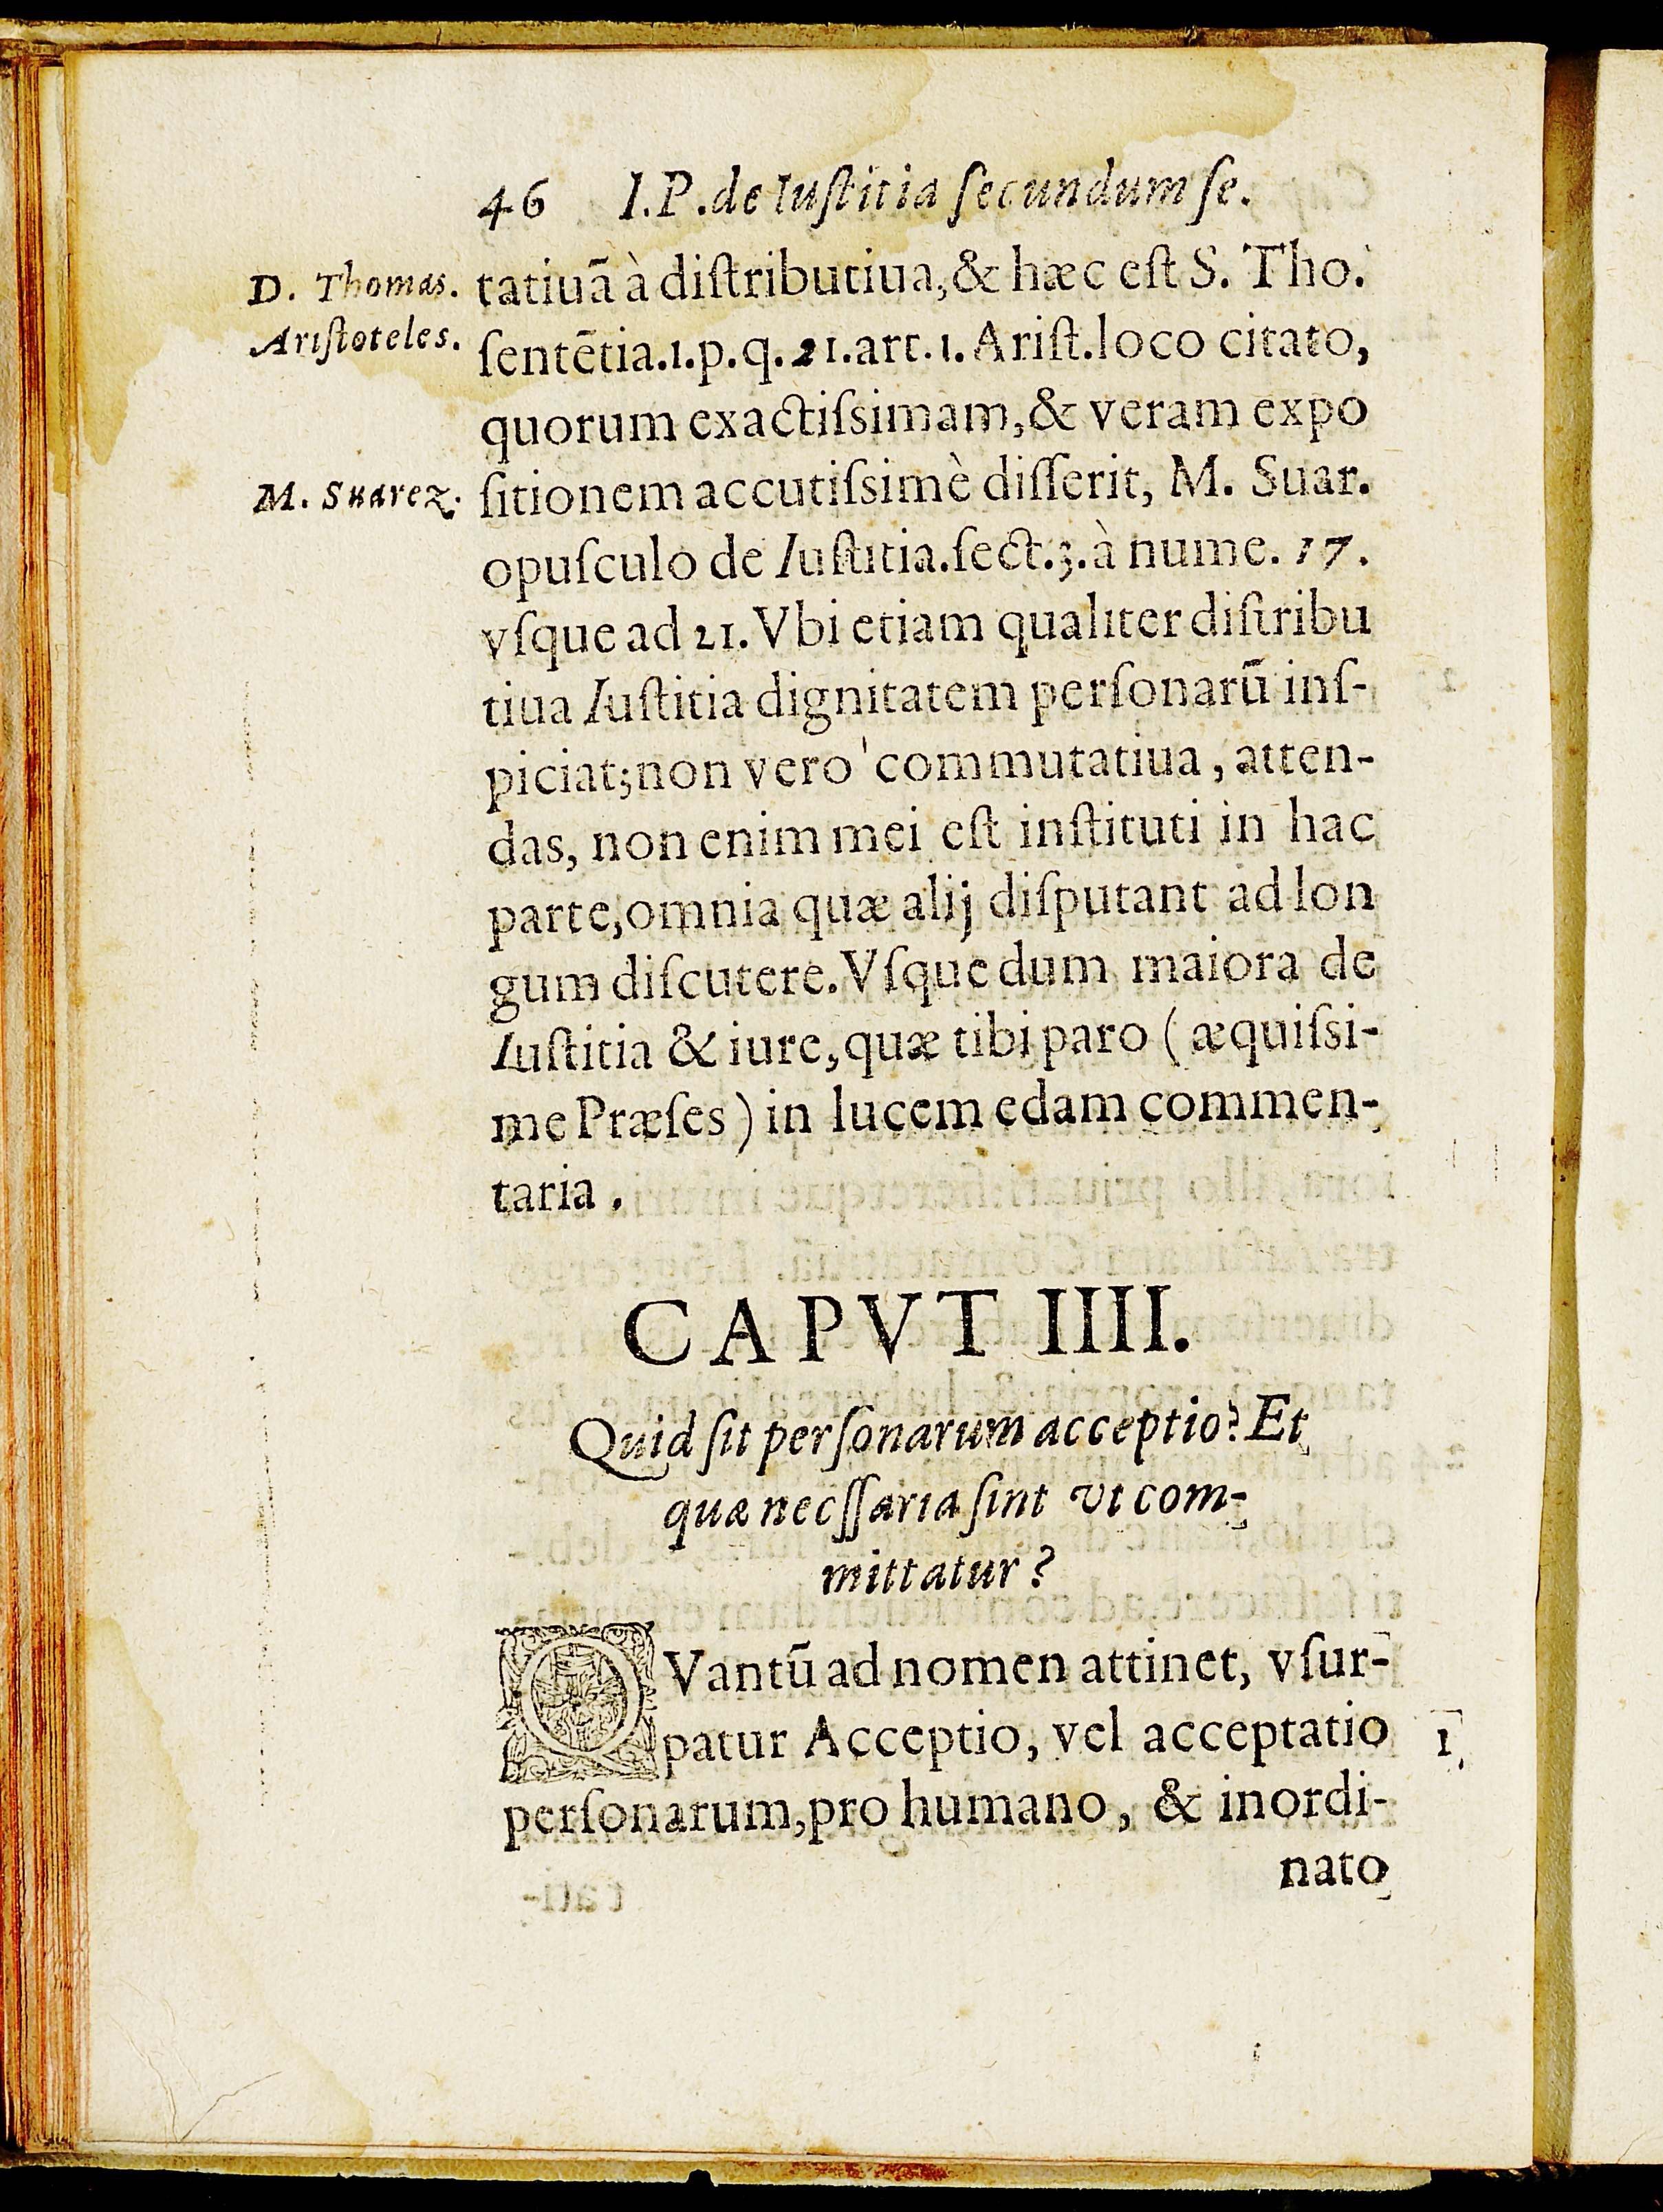 46 I.P.de Iuſtitia ſecundum ſe.
D. Thomas.
Ariſtoteles.
tatiuã à diſtributiua,& hæc eſt S. Tho.
ſentẽtia.1.p.q.21.art.1.Ariſt.loco citato,
quorum exactiſsimam,& veram expo
M. Suarez.
ſitionem accutiſsimè diſſerit, M. Suar.
opuſculo de Iuſtitia.ſect.3.à nume. 17.
vſque ad 21. Vbi etiam qualiter diſtribu
tiua Iuſtitia dignitatem perſonarũ inſ-
piciat;non vero commutatiua, atten-
das, non enim mei eſt inſtituti in hac
parte,omnia quæ alij diſputant ad lon
gum diſcutere.Vſque dum maiora de
Iuſtitia & iure,quæ tibi paro (æquiſsi-
me Præſes) in lucem edam commen-
taria.
CAPVT IIII.
Quid ſit perſonarum acceptio? Et
quæ necſſaria ſint vt com-
mittatur?
QVantũ ad nomen attinet, vſur-
patur Acceptio, vel acceptatio
1
perſonarum,pro humano, & inordi-
nato